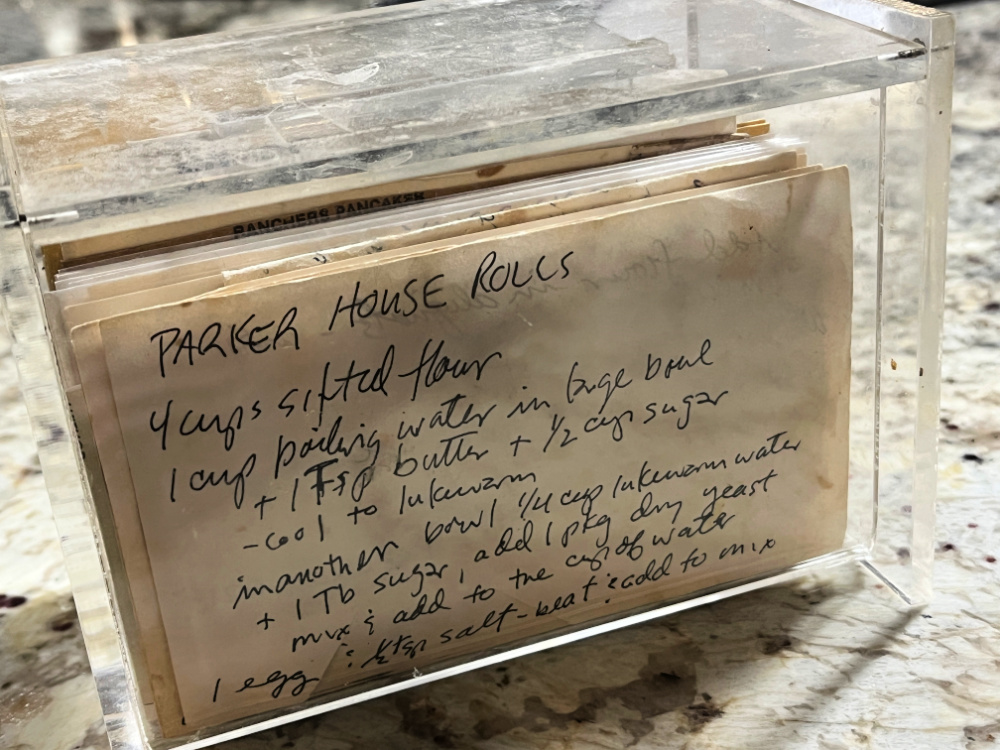 RANCHERS PANCAKES
PARKER HOUSE ROLLS
4 cups sifted flour
1 cup boiling water in large bowl
+ 1 Tsp butter + 1/2 cup sugar
- cool to lukewarm
in another bowl 1/4 cup lukewarm water
+ 1 Tb sugar, add 1 pkg dry yeast
mix & add to the cup of water
1 egg & 1/2 tsp salt - beat & add to mix